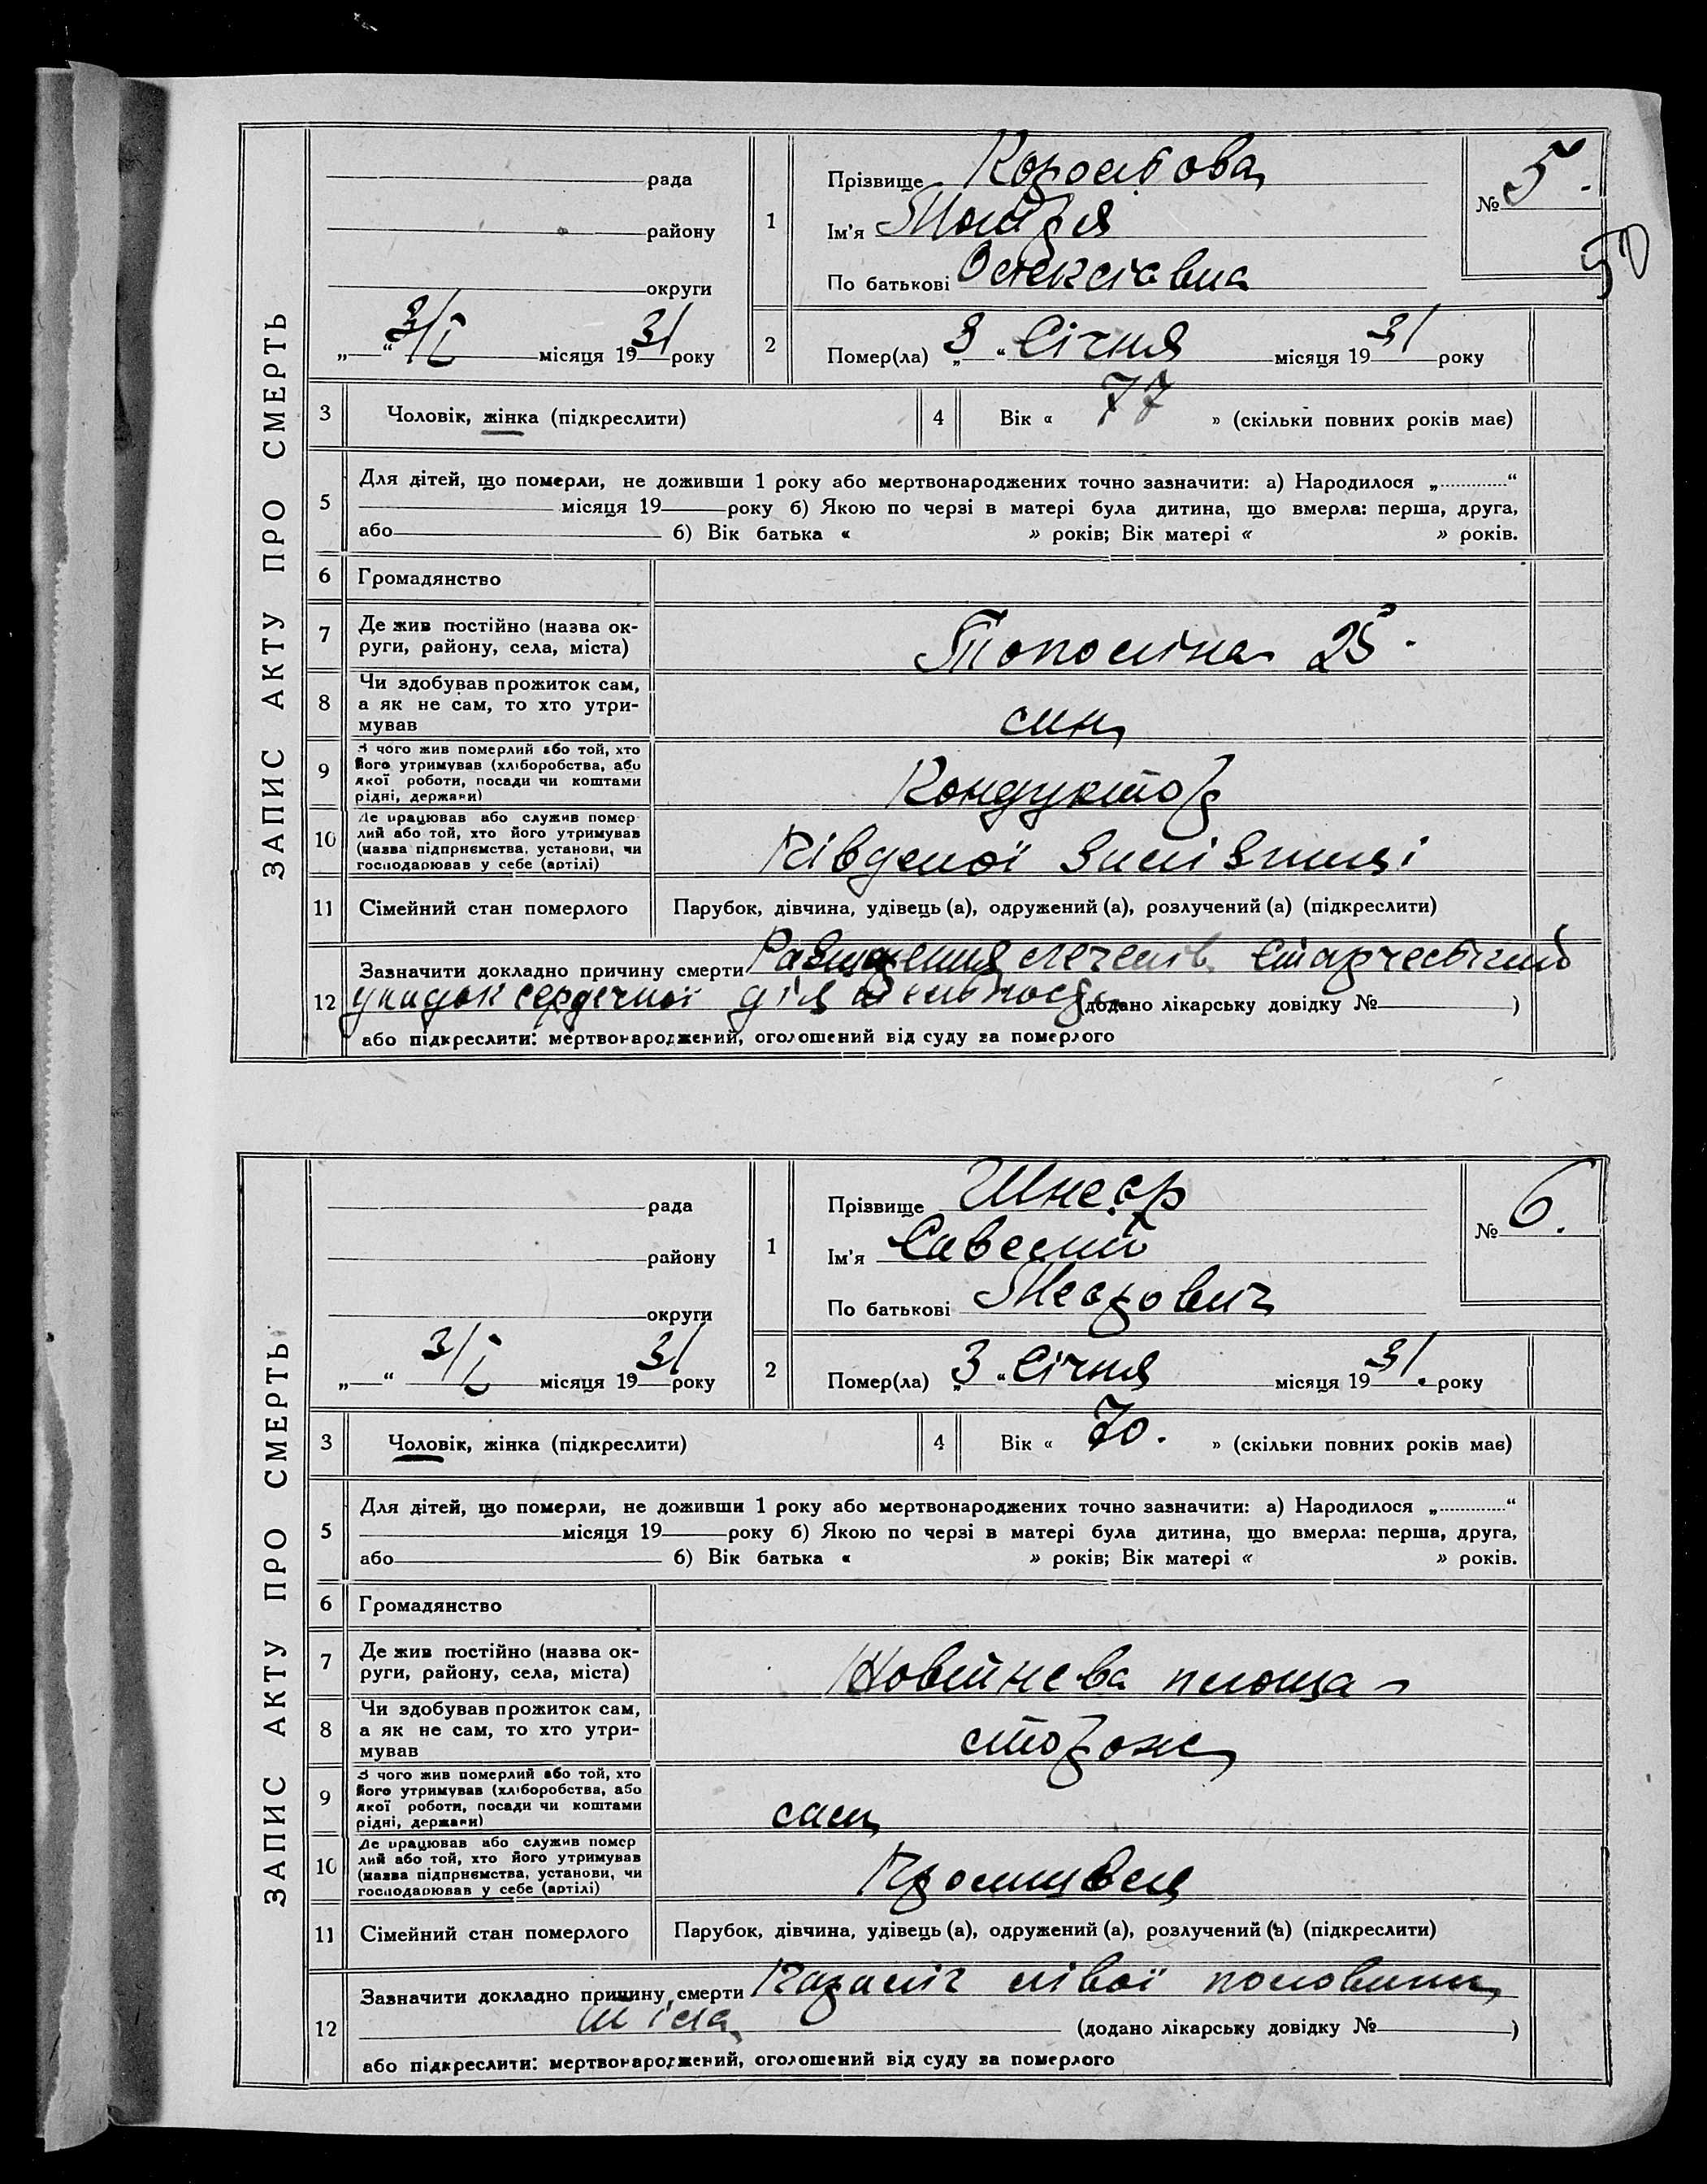 ЗАПИС АКТУ ПРО СМЕРТЬ
рада
району
округи
„ “ 3/I місяця 1931 року
1
Прізвище
Ім'я
По батькові Олексієвна
№ 5.
50
2
Помер(ла) „3“ Січня місяця 1931 року
3
Чоловік, жінка (підкреслити)
4
Вік « 77 » (скільки повних років має)
5
Для дітей, що померли, не доживши 1 року або мертвонароджених точно зазначити: а) Народилося „ “
місяця 19 року б) Якою по черзі в матері була дитина, що вмерла: перша, друга,
або б) Вік батька « » років; Вік матері « » років.
6
Громадянство
7
Де жив постійно (назва ок-
руги, району, села, міста)
25.
8
Чи здобував прожиток сам,
а як не сам, то хто утри-
мував
син
9
З чого жив померлий або той, хто
його утримував (хліборобства, або
якої роботи, посади чи коштами
рідні, держави)
Кондуктор
10
Де працював або служив помер
лий або той, хто його утримував
(назва підприємства, установи, чи
господарював у себе (артілі)
Південої
11
Сімейний стан померлого
Парубок, дівчина, удівець (а), одружений (а), розлучений (а) (підкреслити)
12
Зазначити докладно причину смерти
упадок сердечної
(додано лікарську довідку № )
або підкреслити: мертвонароджений, оголошений від суду за померлого
ЗАПИС АКТУ ПРО СМЕРТЬ
рада
району
округи
„ “ 3/I місяця 1931 року
1
Прізвище Шнеєр
Ім'я Савелий
По батькові
№ 6.
2
Помер(ла) „3“ Січня місяця 1931. року
3
Чоловік, жінка (підкреслити)
4
Вік « 70. » (скільки повних років має)
5
Для дітей, що померли, не доживши 1 року або мертвонароджених точно зазначити: а) Народилося „ “
місяця 19 року б) Якою по черзі в матері була дитина, що вмерла: перша, друга,
або б) Вік батька « » років; Вік матері « » років.
6
Громадянство
7
Де жив постійно (назва ок-
руги, району, села, міста)
площа
8
Чи здобував прожиток сам,
а як не сам, то хто утри-
мував
сторож
9
З чого жив померлий або той, хто
його утримував (хліборобства, або
якої роботи, посади чи коштами
рідні, держави)
сам
10
Де працював або служив помер
лий або той, хто його утримував
(назва підприємства, установи, чи
господарював у себе (артілі)
11
Сімейний стан померлого
Парубок, дівчина, удівець (а), одружений (а), розлучений (а) (підкреслити)
12
Зазначити докладно причину смерти Параліч лівої половини
тіла
(додано лікарську довідку № )
або підкреслити: мертвонароджений, оголошений від суду за померлого